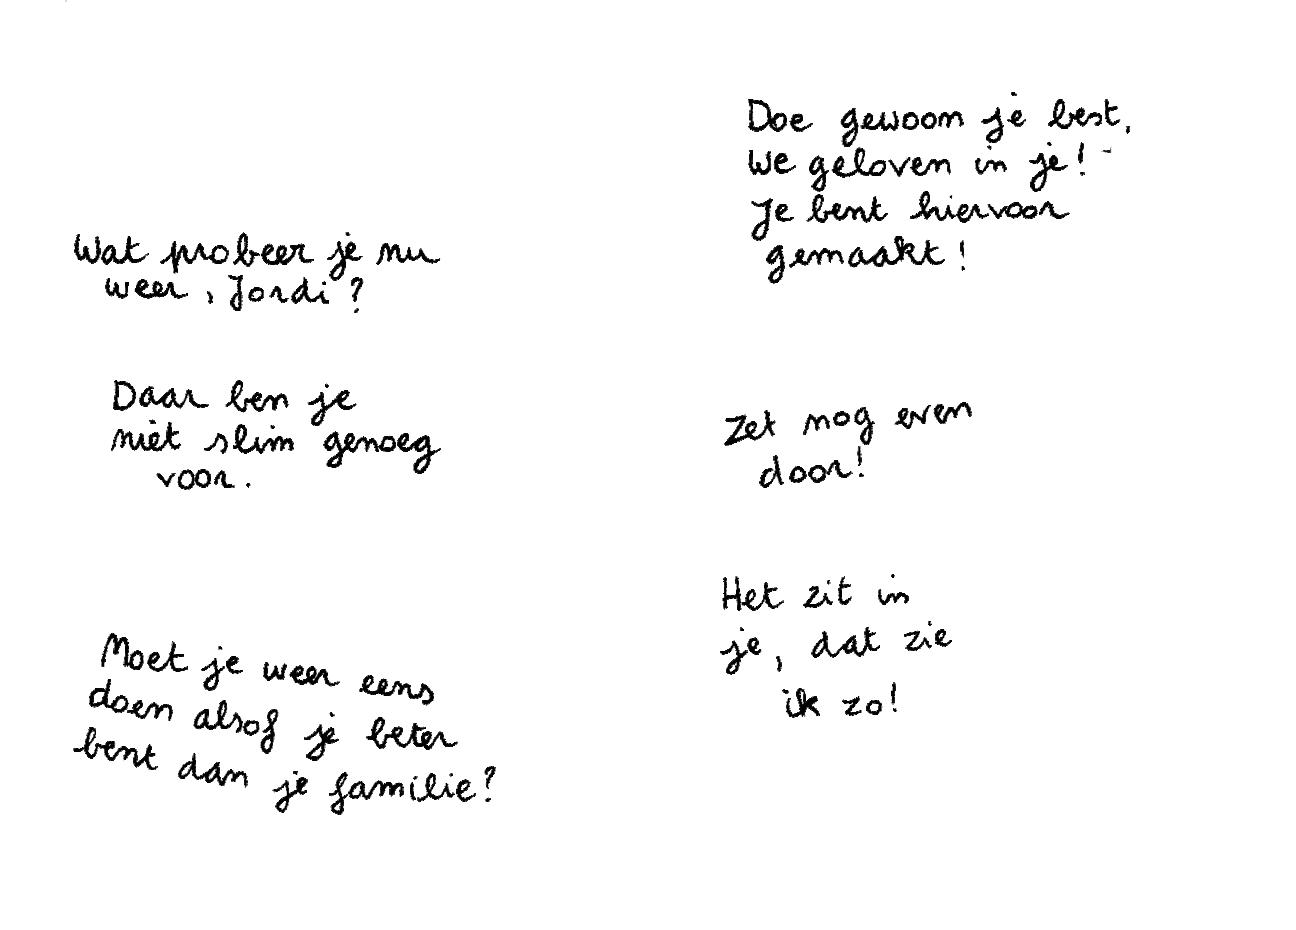 Wat probeer je nu
weer, Jordi?
Daar ben je
niet slim genoeg
voor.
Moet je weer eens
doen alsof je beter
bent dan je familie?
Doe gewoon je best,
We geloven in je!
Je bent hiervoor
gemaakt!
Zet nog even
door!
Het zit in
je, dat zie
ik zo!